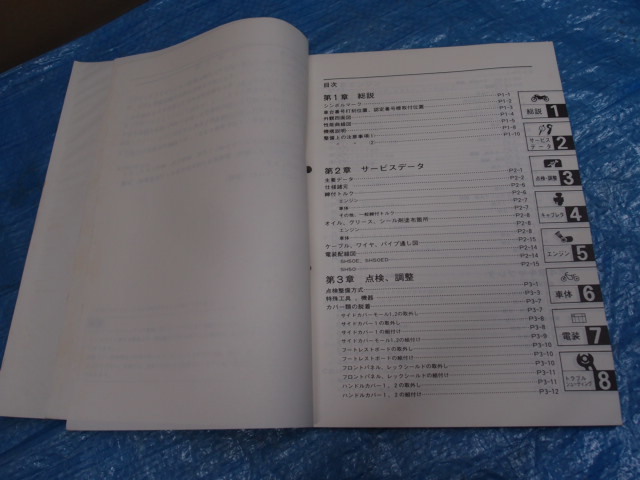 目次
第1章 総説
シンボルマーク P1-1
車台番号打刻位置、認定番号標取付位置 P1-2
外観四面図 P1-3
性能曲線図 P1-4
機構説明 P1-5
整備上の注意事項 1. P1-8
P1-10
第2章 サービスデータ
主要データ P2-1
仕様諸元 P2-2
締付トルク P2-6
エンジン P2-6
車体 P2-7
その他、一般締付トルク P2-7
オイル、グリース、シール剤塗布箇所 P2-8
エンジン P2-8
車体
ケーブル、ワイヤ、パイプ通し図 P2-15
電装配線図 P2-14
SH50E、SH50ED P2-14
SH50 P2-15
第3章 点検、調整
点検整備方式 P3-1
特殊工具、機器 P3-3
カバー類の脱着 P3-7
サイドカバーモール1,2の取外し P3-7
サイドカバー1の取外し P3-8
サイドカバー1の組付け P3-8
サイドカバーモール1,2の組付け P3-9
フートレストボードの取外し P3-10
フートレストボードの組付け P3-10
フロントパネル、レッグシールドの取外し P3-10
フロントパネル、レッグシールドの組付け P3-11
ハンドルカバー1、2の取外し P3-11
ハンドルカバー1、2の組付け P3-12
総説 1
サービスデータ 2
点検・調整 3
キャブレタ 4
エンジン 5
車体 6
電装 7
トラブルシューティング 8